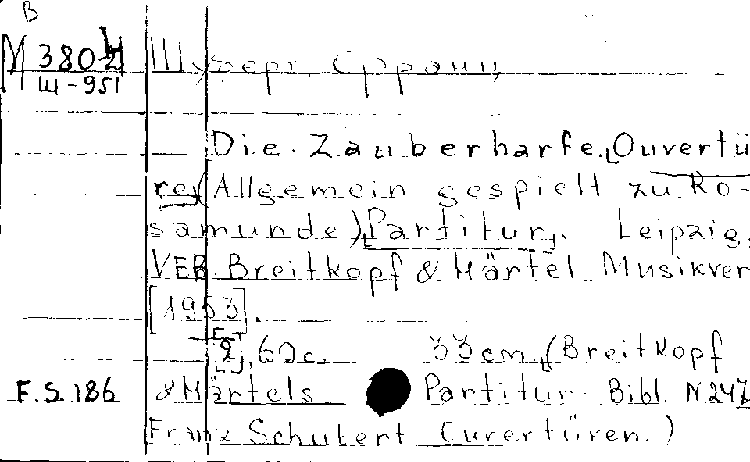 В
М 380
Ш-951
Шуберт Франц
Die Zauberharfe. Ouvertü
re (Allgemein gespielt zu Ro-
samunde) Partitur. Leipzig,
VEB Breitkopf & Härtel Musikver
[1953].
[2], 60 c. 33 cm (Breitkopf
F.S. 186 & Härtels Partitur Bibl. N 247
Franz Schubert Ouvertüren.)